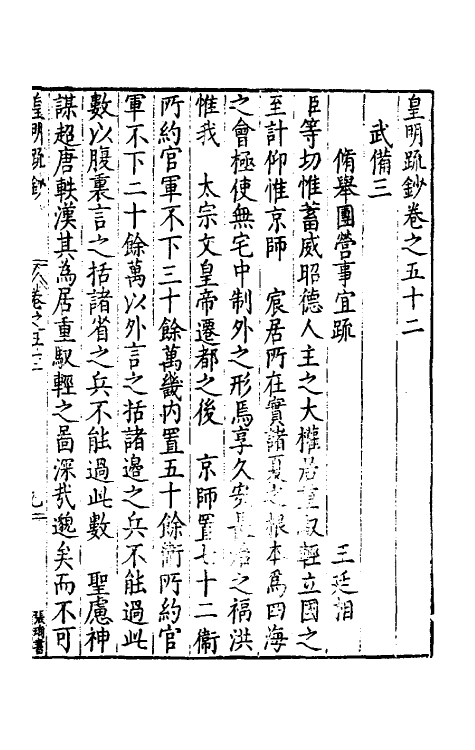 皇明疏鈔卷之五十二
武備三
脩舉團營事宜疏 王廷相
臣等切惟蓄威昭德人主之大權居重馭輕立國之
至計仰惟京師 宸居所在實諸夏之根本為四海
之會極使無宅中制外之形焉享久安長治之福洪
惟我 太宗文皇帝遷都之後 京師置七十二衛
所約官軍不下三十餘萬畿內置五十餘衛所約官
軍不下二十餘萬以外言之括諸邊之兵不能過此
數以腹裏言之括諸省之兵不能過此數 聖慮神
謀超唐軼漢其為居重馭輕之啚深哉邈矣而不可
皇明疏鈔 卷之五十二